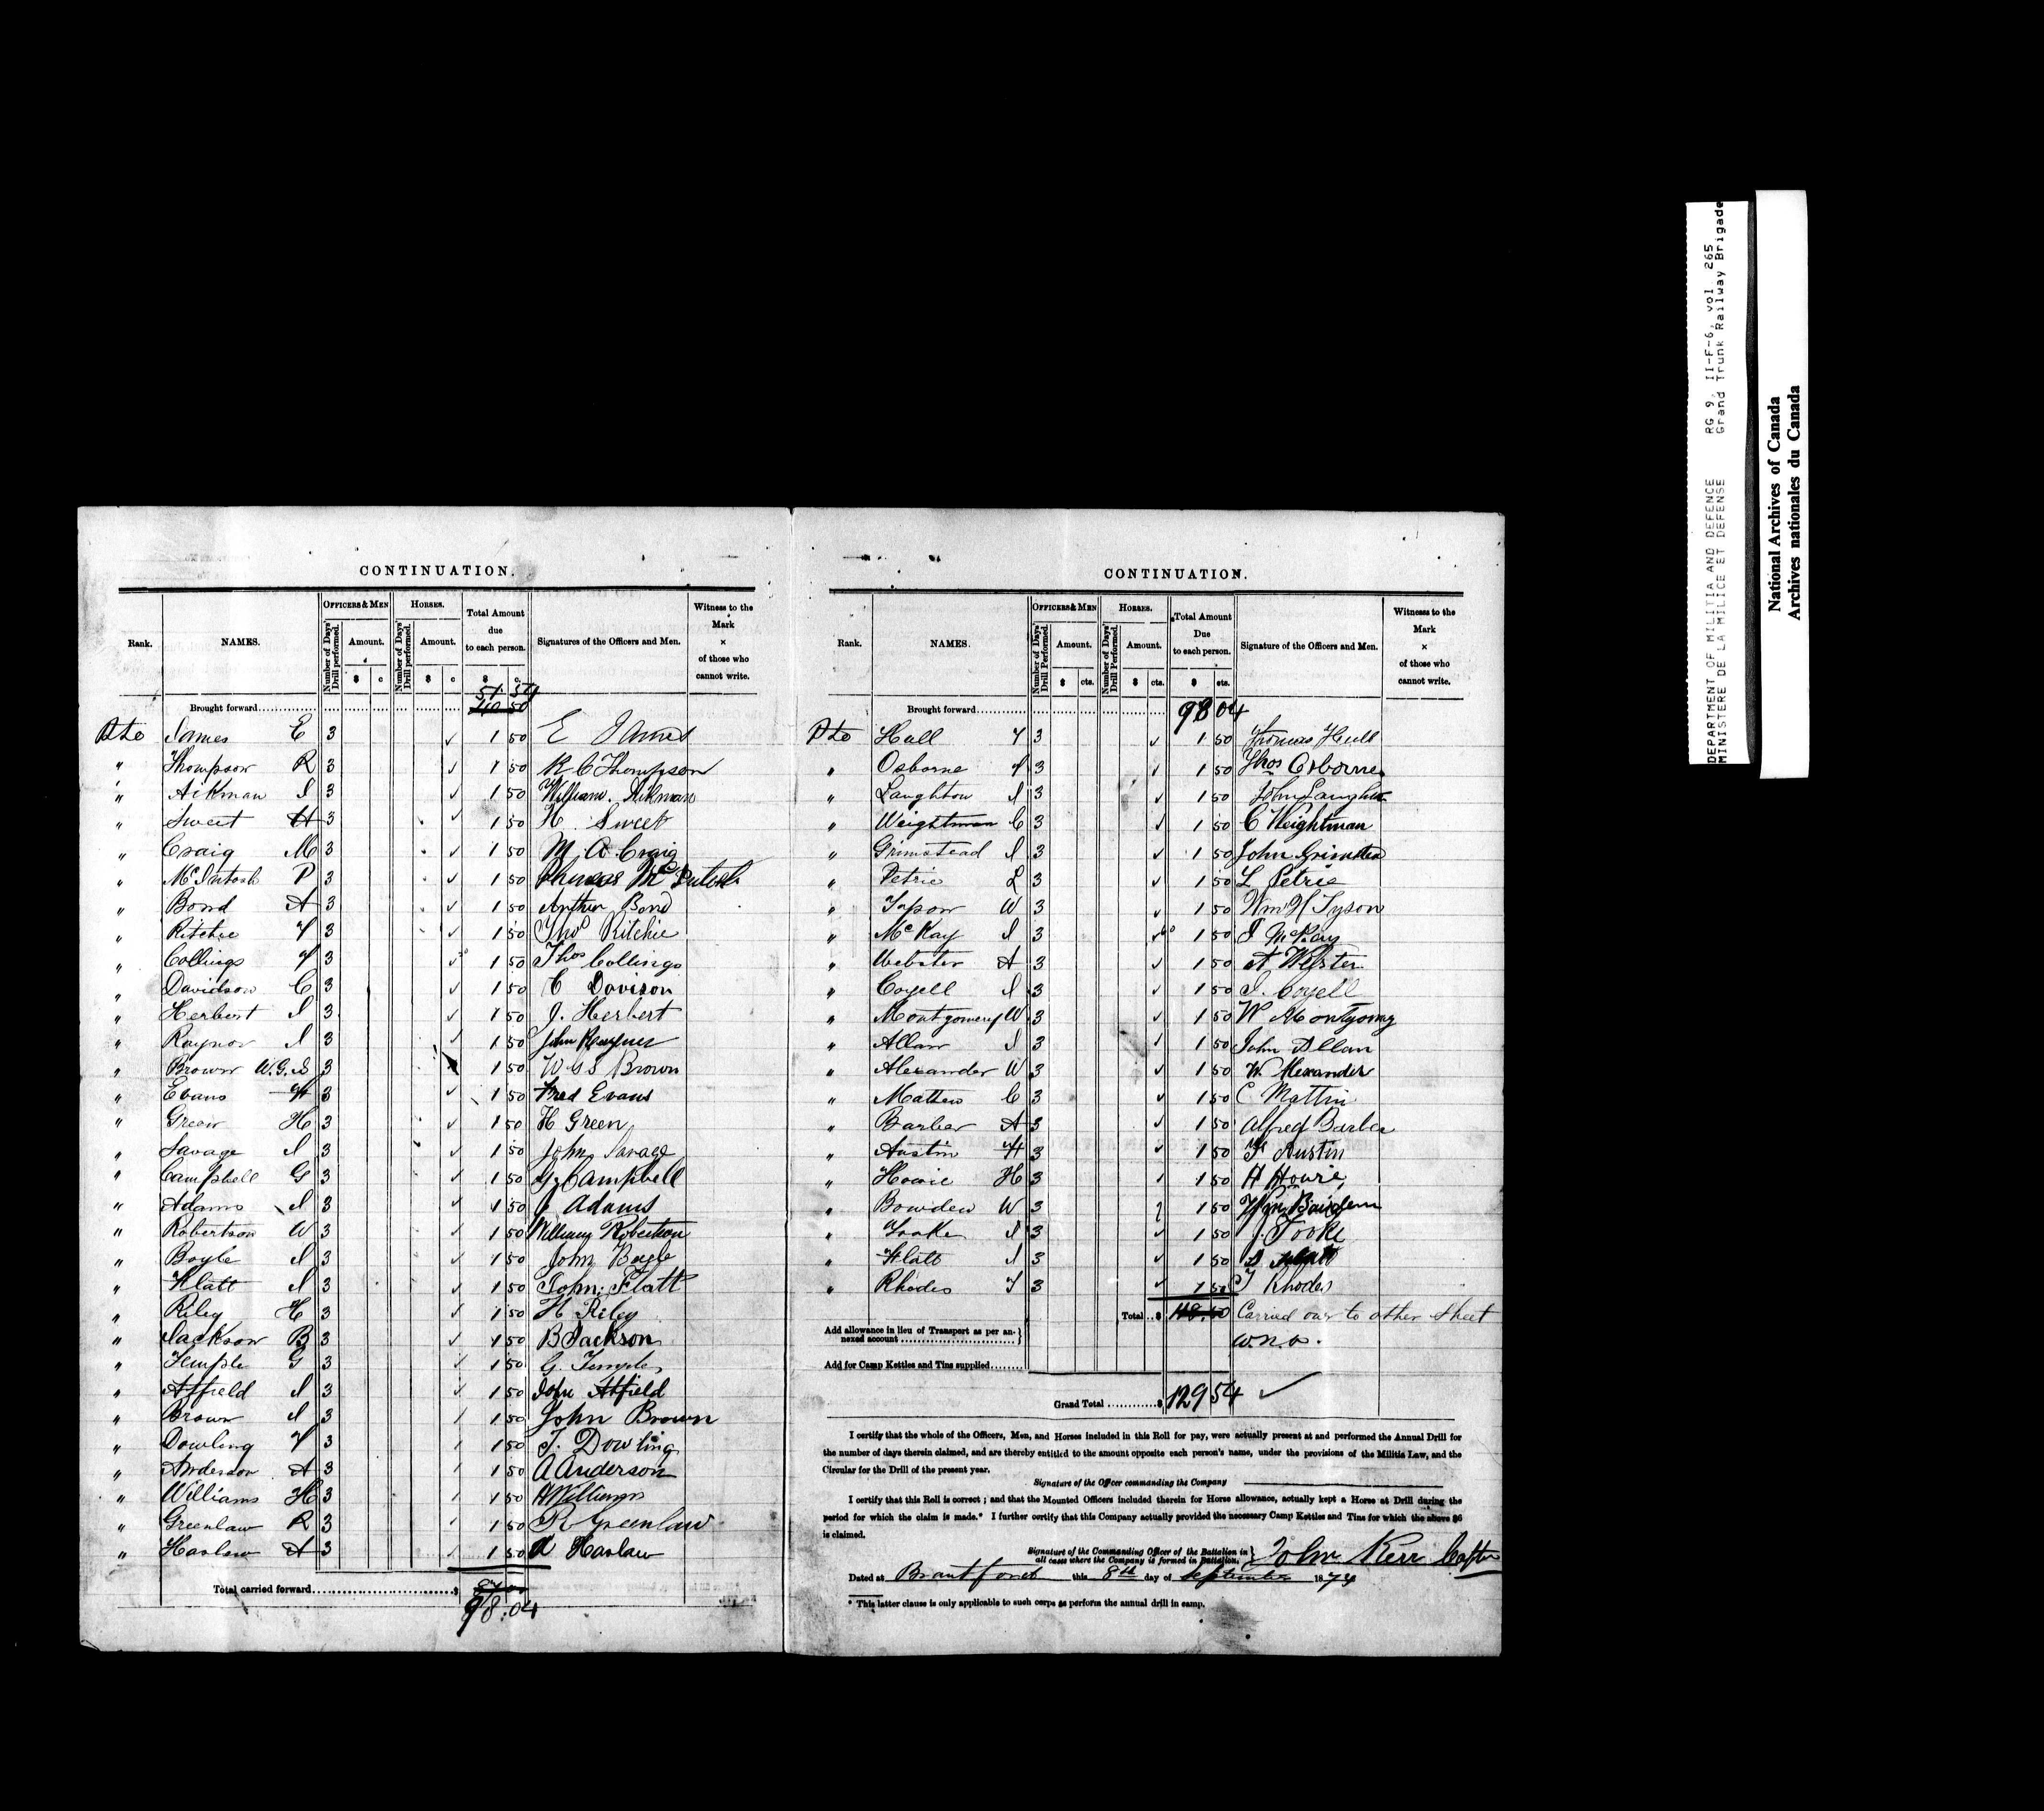 CONTINUATION.
Rank. NAMES. OFFICERS & MEN HORSES. Total Amount due to each person. Signatures of the Officers and Men. Witness to the Mark × of those who cannot write.
Number of Days' Drill performed. Amount. Number of Days' Drill performed. Amount.
$ c $ c $ c.
51 54
Brought forward 40 50
Pte James E 3 ✓ 1 50 E James
" Thompson R 3 ✓ 1 50 R C Thompson
" Aikman J 3 ✓ 1 50 William Aikman
" Sweet H 3 ✓ 1 50 H. Sweet
" Craig M 3 ✓ 1 50 M. A. Craig
" McIntosh P 3 ✓ 1 50 McIntosh
" Bond A 3 ✓ 1 50 Arthur Bond
" Ritchie T 3 ✓ 1 50 Thos Ritchie
" Collings T 3 ✓ 1 50 Thos Collings
" Davidson C 3 ✓ 1 50 C Davison
" Herbert J 3 ✓ 1 50 J. Herbert
" Raynor J 3 ✓ 1 50 John Raynor
" Brown W.G.S 3 1 50 W G S Brown
" Evans F 3 ✓ 1 50 Fred Evans
" Green H 3 ✓ 1 50 H Green
" Savage J 3 ✓ 1 50 John Savage
" Campbell G 3 ✓ 1 50 G Campbell
" Adams J 3 ✓ 1 50 J Adams
" Robertson W 3 ✓ 1 50 William Robertson
" Boyle J 3 ✓ 1 50 John Boyle
" Flatt J 3 ✓ 1 50 John Flatt
" Riley H 3 ✓ 1 50 H Riley
" Jackson B 3 ✓ 1 50 B Jackson
" Temple G 3 ✓ 1 50 G. Temple
" Atfield J 3 ✓ 1 50 John Atfield
" Brown J 3 ✓ 1 50 John Brown
" Dowling T 3 ✓ 1 50 T. Dowling
" Anderson A 3 ✓ 1 50 A Anderson
" Williams H 3 ✓ 1 50 H Williams
" Greenlaw R 3 ✓ 1 50 R Greenlaw
" Haslaw A 3 ✓ 1 50 A Haslaw
Total carried forward $ 87 00
98.04
CONTINUATION.
Rank. NAMES. OFFICERS & MEN HORSES. Total Amount Due to each person. Signature of the Officers and Men. Witness to the Mark × of those who cannot write.
Number of Days' Drill Performed. Amount. Number of Days' Drill Performed. Amount.
$ cts. $ cts. $ cts.
Brought forward 98 04
Pte Hull T 3 ✓ 1 50 Thomas Hull
" Osborne T 3 ✓ 1 50 Thos Osborne
" Laughton J 3 ✓ 1 50 John Laughton
" Weightman C 3 ✓ 1 50 C Weightman
" Grimstead J 3 ✓ 1 50 John Grimstead
" Petrie L 3 ✓ 1 50 L Petrie
" Tyson W 3 ✓ 1 50 Wm H Tyson
" McKay J 3 ✓ 1 50 J McKay
" Webster A 3 ✓ 1 50 A Webster
" Coyell J 3 ✓ 1 50 J. Coyell
" Montgomery W 3 ✓ 1 50 W Montgomy
" Allan J 3 ✓ 1 50 John Allan
" Alexander W 3 ✓ 1 50 W. Alexander
" Mathew C 3 ✓ 1 50 C Mattin
" Barber A 3 ✓ 1 50 Alfred Barber
" Austin F 3 ✓ 1 50 F Austin
" Howie H 3 ✓ 1 50 H Howie
" Bowden W 3 1 50 Wm Bowden
" Tooke J 3 ✓ 1 50 J. Tooke
" Flatt J 3 ✓ 1 50
" Rhodes T 3 ✓ 1 50 T Rhodes
Total.. $ 118.50 Carried over to other sheet
Add allowance in lieu of Transport as per annexed account
Add for Camp Kettles and Tins supplied
Grand Total $ 129 54 ✓
I certify that the whole of the Officers, Men, and Horses included in this Roll for pay, were actually present at and performed the Annual Drill for
the number of days therein claimed, and are thereby entitled to the amount opposite each person's name, under the provisions of the Militia Law, and the
Circular for the Drill of the present year.
Signature of the Officer commanding the Company
I certify that this Roll is correct; and that the Mounted Officers included therein for Horse allowance, actually kept a Horse at Drill during the
period for which the claim is made.* I further certify that this Company actually provided the necessary Camp Kettles and Tins for which the above $6
is claimed.
Signature of the Commanding Officer of the Battalion in
all cases where the Company is formed in Battalion. } John Kerr Captn
Dated at Brantford this 8th day of September 1874
* This latter clause is only applicable to such corps as perform the annual drill in camp.
DEPARTMENT OF MILITIA AND DEFENCE RG 9, II-F-6, vol 265
MINISTERE DE LA MILICE ET DEFENSE Grand Trunk Railway Brigade
National Archives of Canada
Archives nationales du Canada